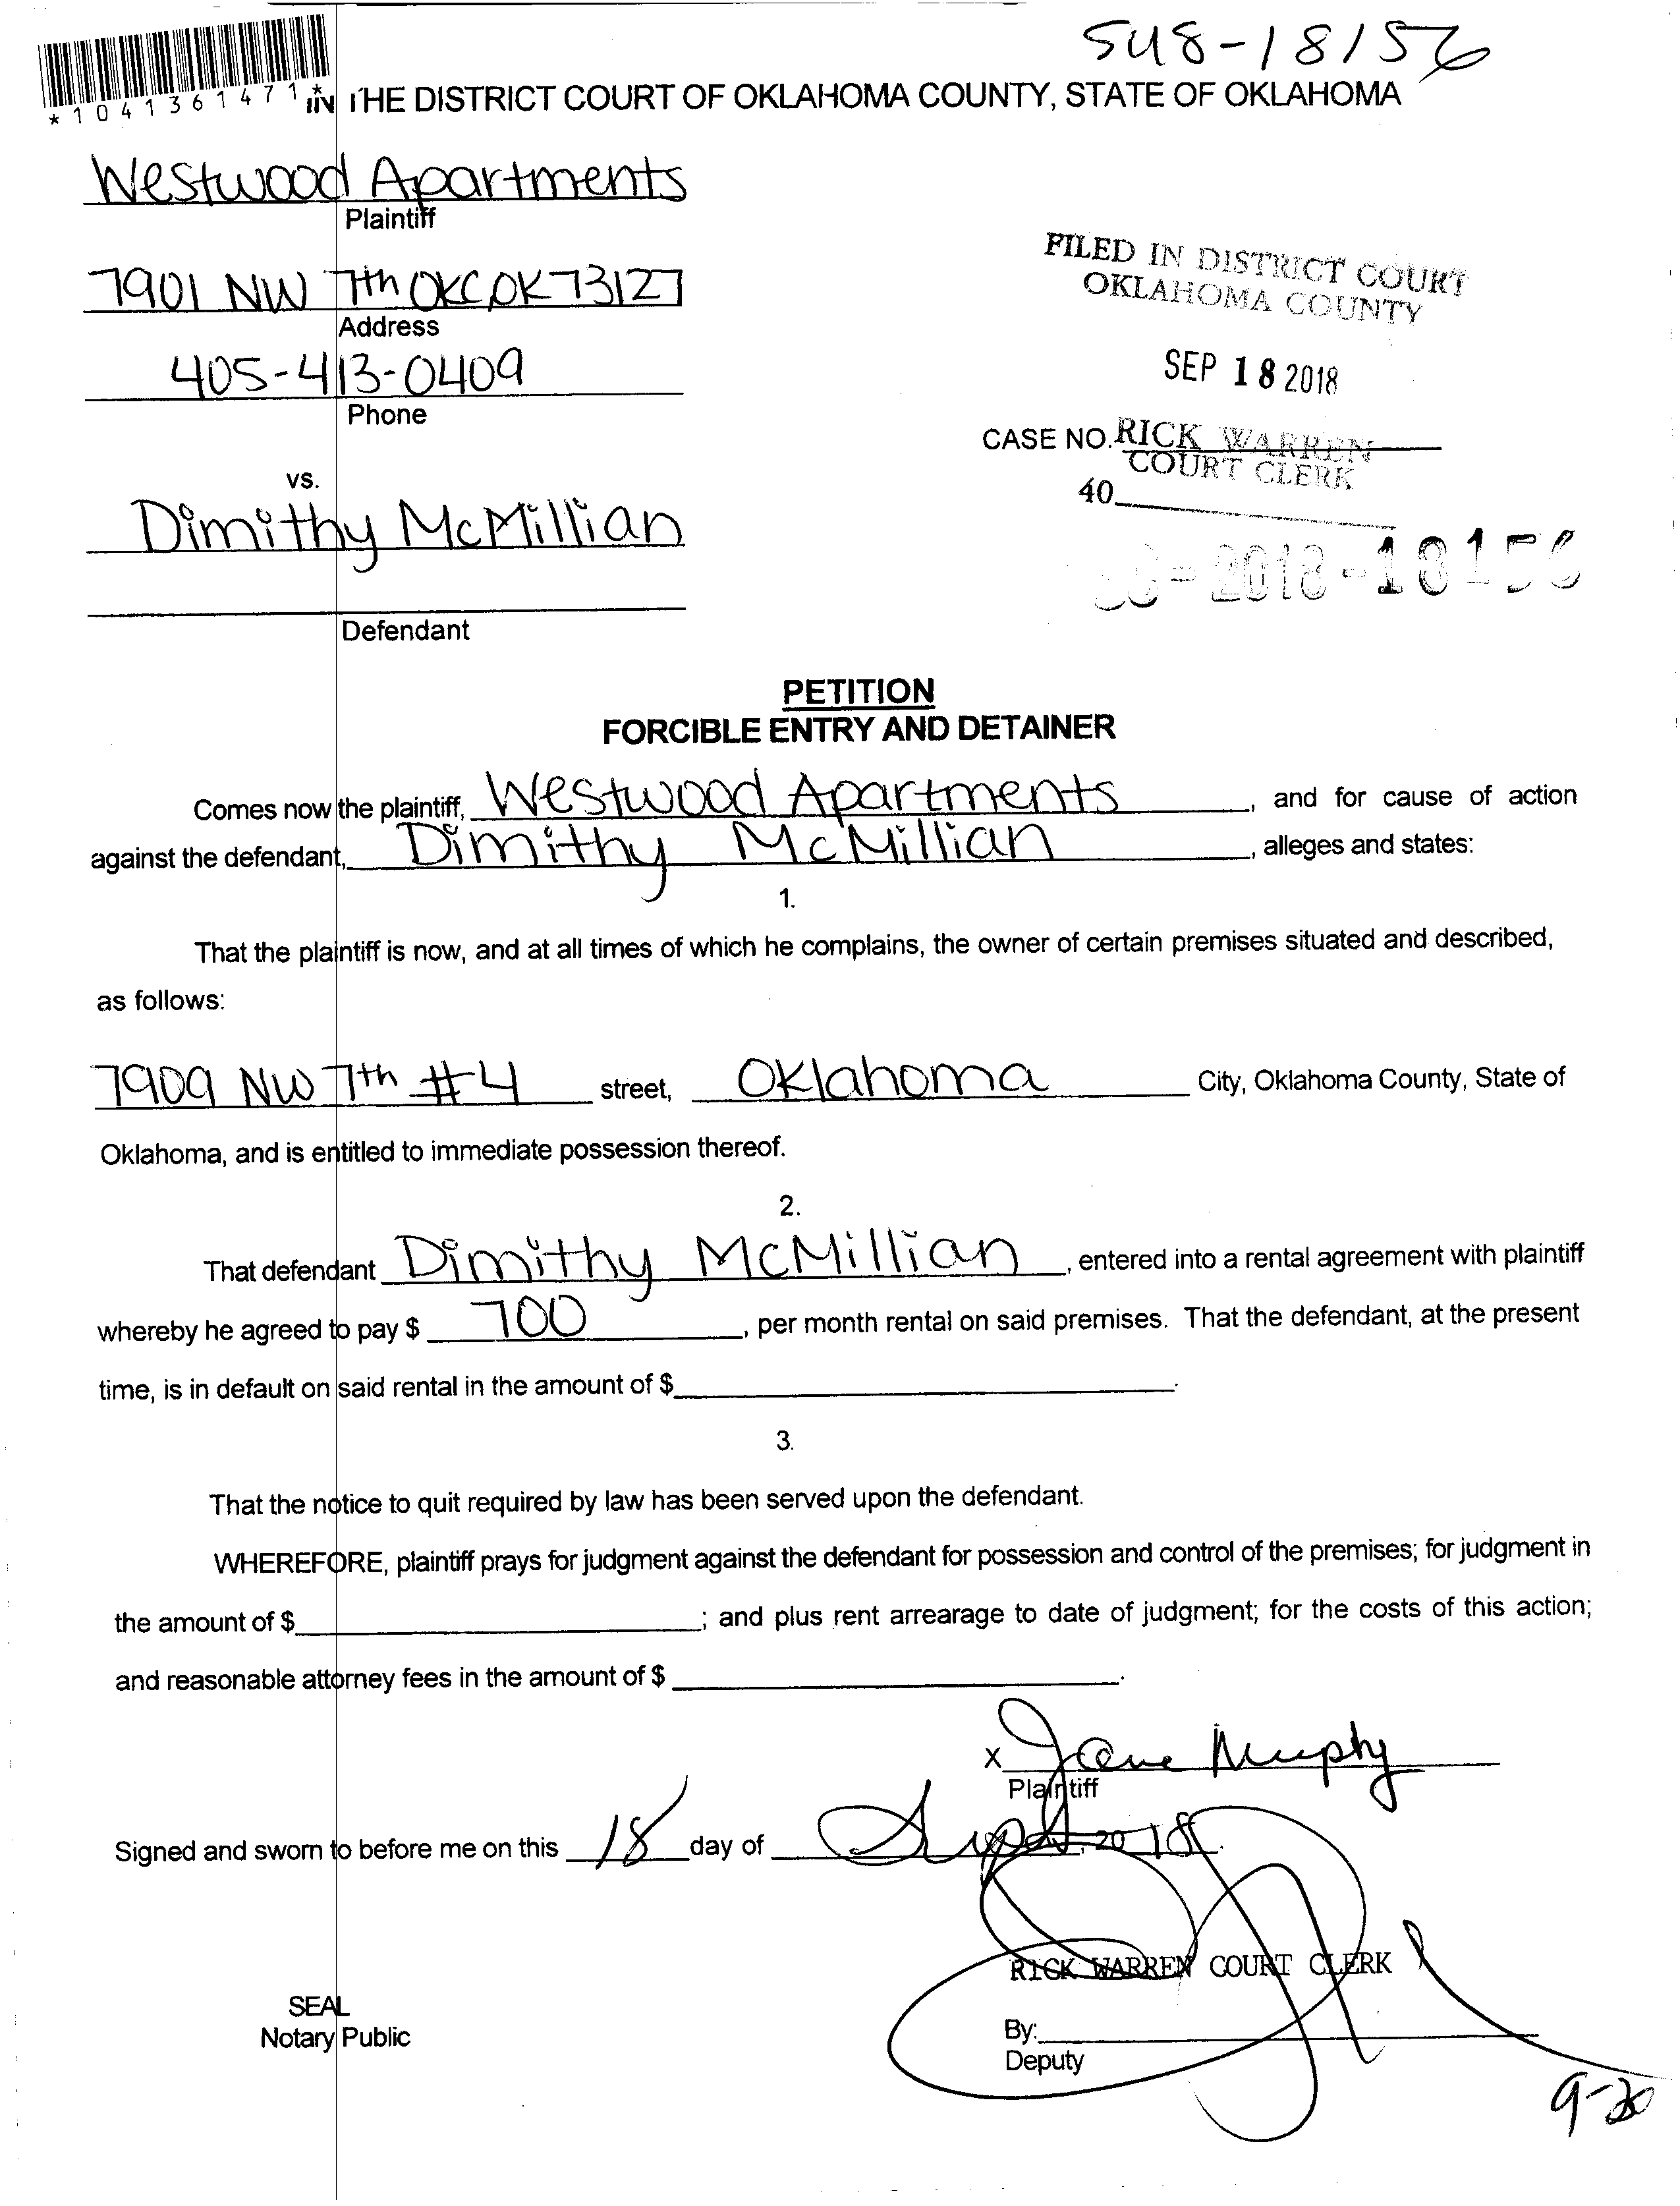 SC18-18156
*1041361471*
IN THE DISTRICT COURT OF OKLAHOMA COUNTY, STATE OF OKLAHOMA
Westwood Apartments
Plaintiff
7901 NW 7th OKC, OK 73127
Address
405-413-0409
Phone
FILED IN DISTRICT COURT
OKLAHOMA COUNTY
SEP 18 2018
CASE NO. RICK WARREN
COURT CLERK
40
vs.
Dimithy McMillian
SC-2018-18156
Defendant
PETITION
FORCIBLE ENTRY AND DETAINER
Comes now the plaintiff, Westwood Apartments, and for cause of action
against the defendant, Dimithy McMillian, alleges and states:
1.
That the plaintiff is now, and at all times of which he complains, the owner of certain premises situated and described,
as follows:
7909 NW 7th #4 street, Oklahoma City, Oklahoma County, State of
Oklahoma, and is entitled to immediate possession thereof.
2.
That defendant Dimithy McMillian, entered into a rental agreement with plaintiff
whereby he agreed to pay $ 700, per month rental on said premises. That the defendant, at the present
time, is in default on said rental in the amount of $ .
3.
That the notice to quit required by law has been served upon the defendant.
WHEREFORE, plaintiff prays for judgment against the defendant for possession and control of the premises; for judgment in
the amount of $ ; and plus rent arrearage to date of judgment; for the costs of this action;
and reasonable attorney fees in the amount of $ .
x Jane Murphy
Plaintiff
Signed and sworn to before me on this 18 day of Sept, 2018.
RICK WARREN COURT CLERK
SEAL
Notary Public
By:
Deputy
9-20